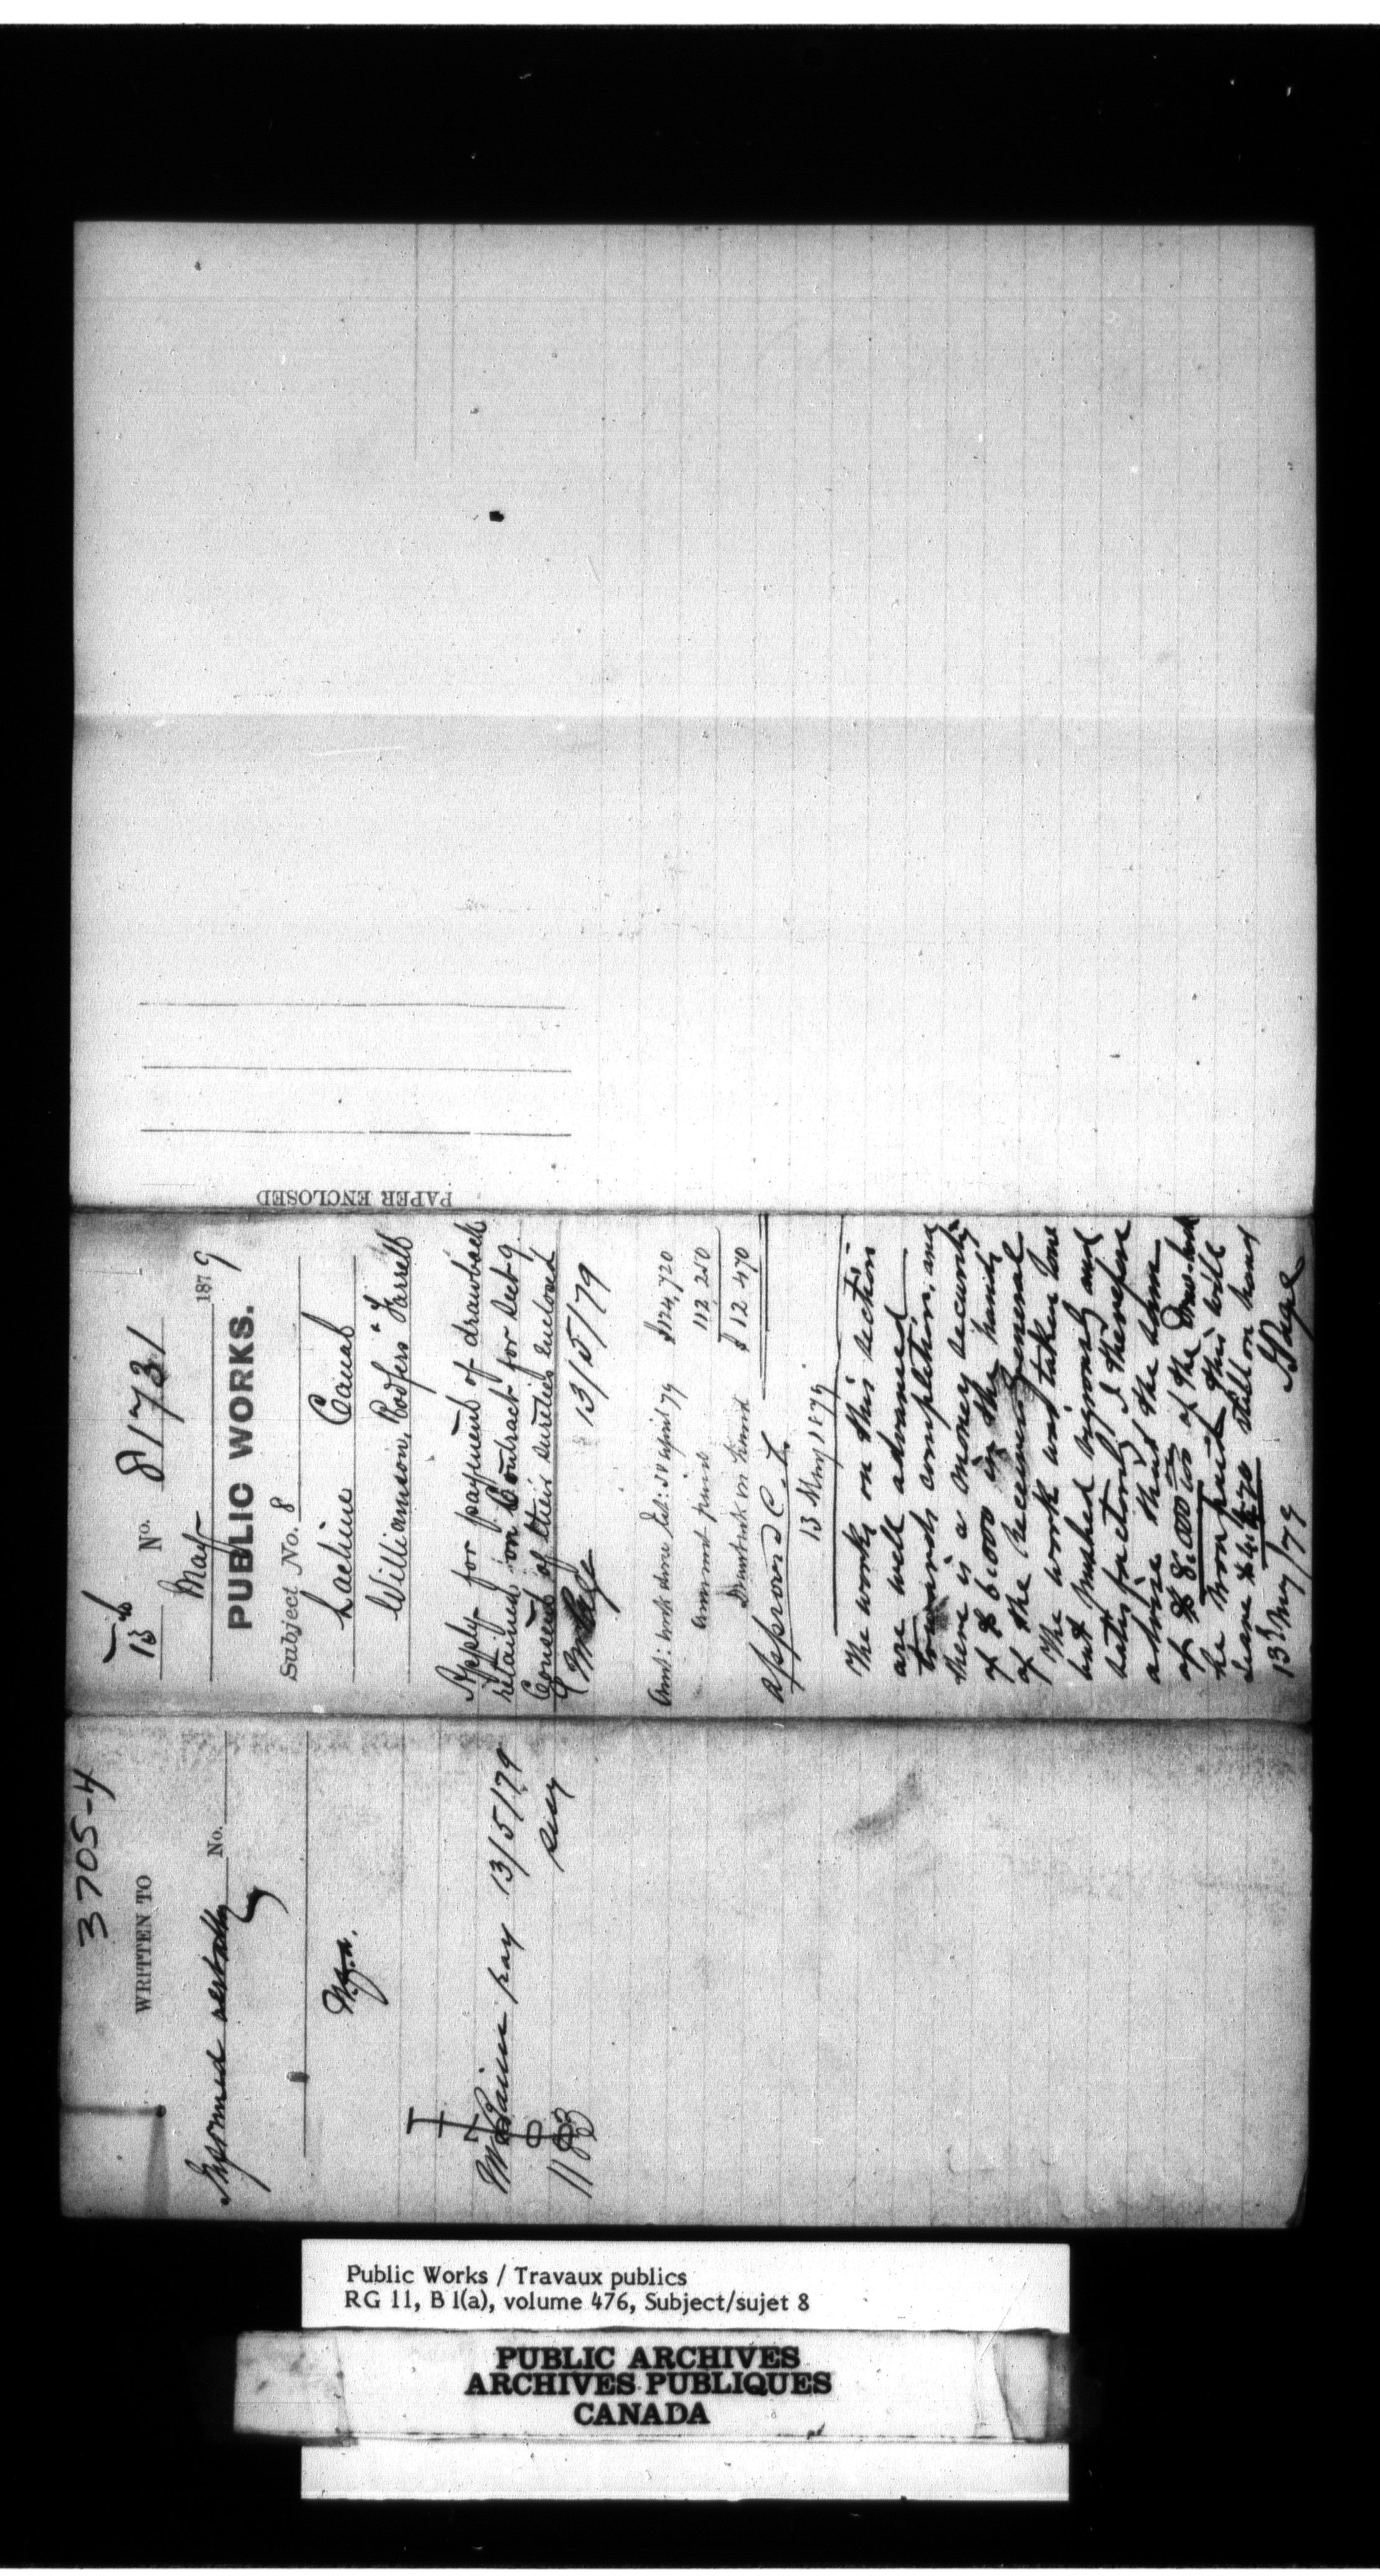 3705-4
WRITTEN TO
No.
Informed verbally
Mr Baine pay 13/5/79
11803
13 No. 81731
May 1879
PUBLIC WORKS.
Subject No. 8
Lachine Canal
Williamson, Rodgers & Farrell
Apply for payment of drawback
retained on Contract for Sect 9
Consent of their sureties enclosed
13/5/79
Amt: work done Est: 30 April 79 $124,720
Amount paid 112 250
Drawback on hand $12 470
Approved
13 May 1879
The works on this section
are well advanced
towards completion, and
there is a money security
of $6,000 in the hands
of the Receiver General
The work was taken low
but pushed vigorously and
satisfactorily, I therefore
advise that the sum
of $8,000 of the Drawback
be now paid, this will
leave $4,470 still on hand
13 May/79 J Page
PAPER ENCLOSED
Public Works / Travaux publics
RG 11, B 1(a), volume 476, Subject/sujet 8
PUBLIC ARCHIVES
ARCHIVES PUBLIQUES
CANADA